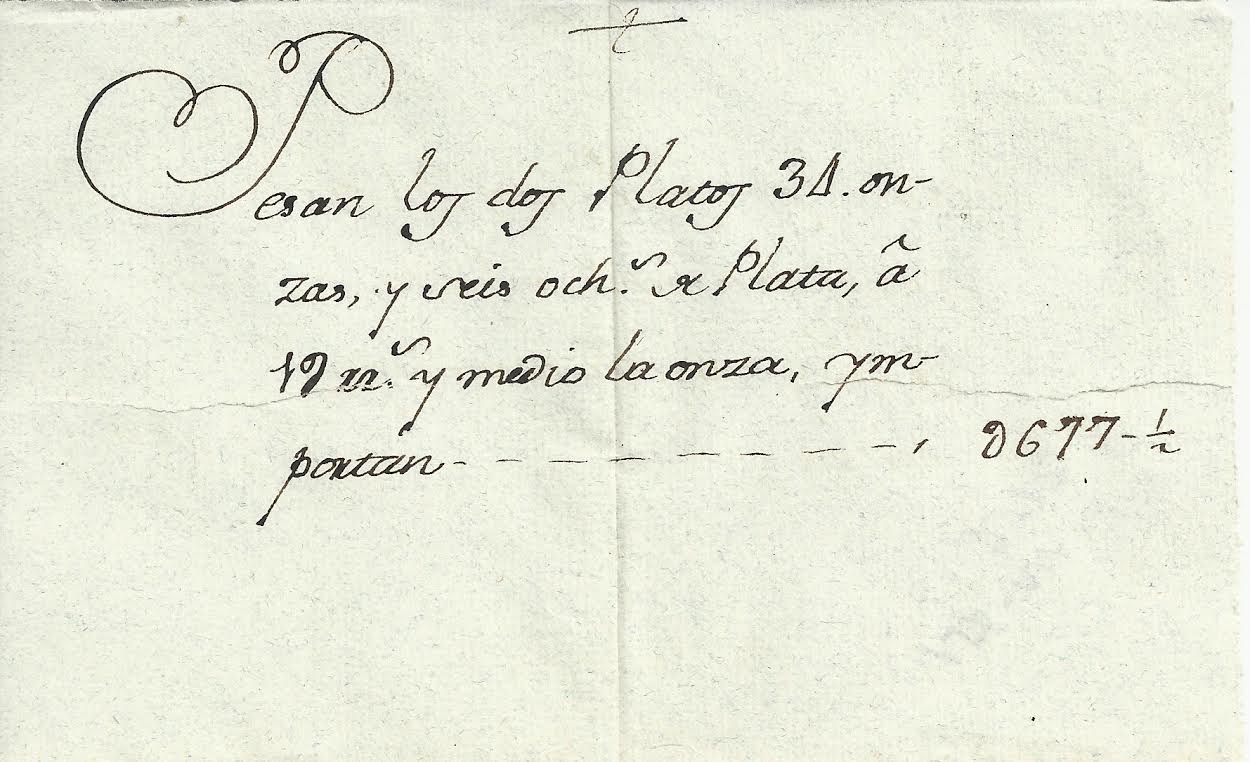 Pesan los dos Platos 34. on-
zas, y seis och.s de Plata, â
19 rr.s y medio la onza, ym-
portan - - - - - - - - - , D677-½